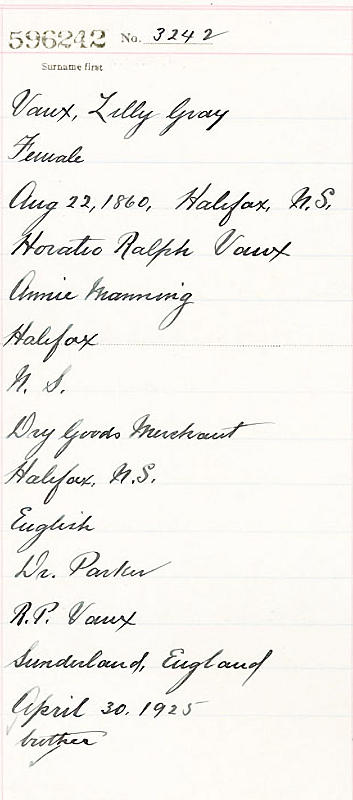 596242 No. 3242
Surname first
Vaux, Lilly Gray
Female
Aug 22, 1860, Halifax, N.S.
Horatio Ralph Vaux
Annie Manning
Halifax
N. S.
Dry Goods Merchant
Halifax, N.S.
English
Dr. Parker
R.P. Vaux
Sunderland, England
April 30. 1925
brother